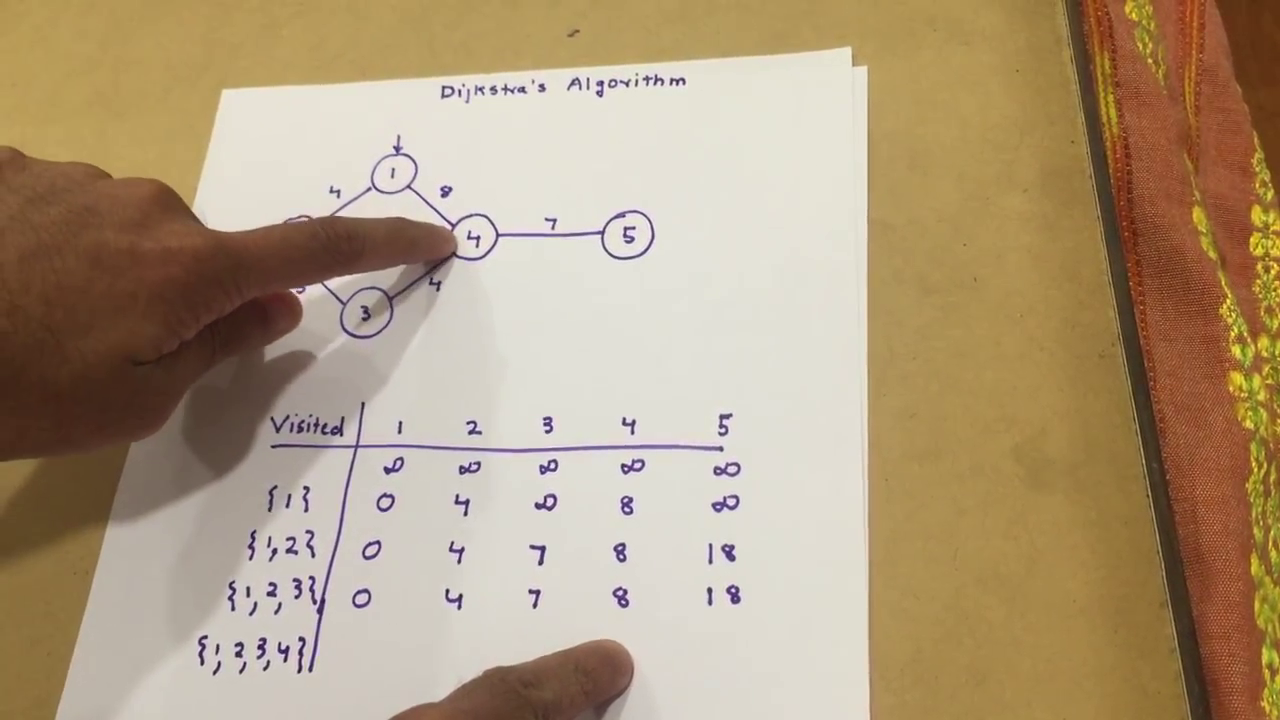 Dijkstra's Algorithm
1
4 8
4 7 5
4
3
Visited 1 2 3 4 5
∞ ∞ ∞ ∞ ∞
{1} 0 4 ∞ 8 ∞
{1,2} 0 4 7 8 18
{1,2,3} 0 4 7 8 18
{1,2,3,4}